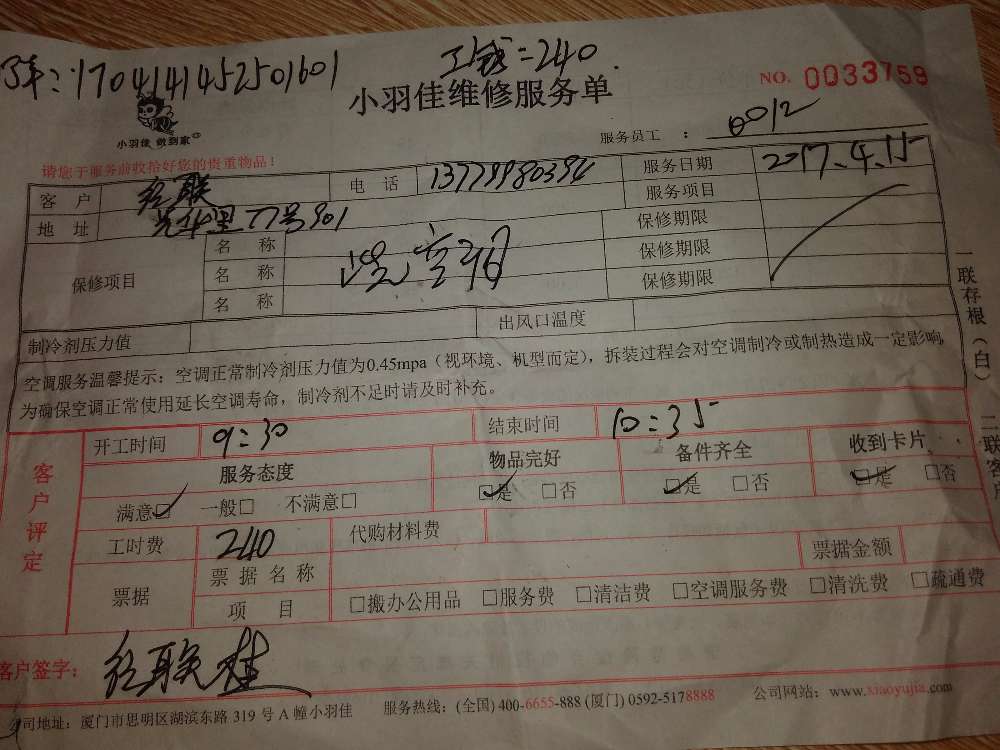 单:1704141452501601 工钱=240
NO. 0033759
小羽佳维修服务单
小羽佳 做到家
服务员工 : 0012
请您于服务前收拾好您的贵重物品!
客 户 联 电 话 13779980394 服务日期 2017.4.15
地 址 光华里77号901 服务项目
保修项目 名 称 洗空调 保修期限
名 称 保修期限
名 称 保修期限
制冷剂压力值 出风口温度
空调服务温馨提示:空调正常制冷剂压力值为0.45mpa(视环境、机型而定),拆装过程会对空调制冷或制热造成一定影响
为确保空调正常使用延长空调寿命,制冷剂不足时请及时补充。
一联存根(白) 二联客户
客户评定
开工时间 9:30 结束时间 10:35
服务态度 物品完好 备件齐全 收到卡片
满意□ 一般□ 不满意□ □是 □否 □是 □否 □是 □否
工时费 240 代购材料费
票据 票据名称 票据金额
项 目 □搬办公用品 □服务费 □清洁费 □空调服务费 □清洗费 □疏通费
客户签字: 联桂
公司地址:厦门市思明区湖滨东路 319 号 A 幢小羽佳 服务热线:(全国) 400-6655-888 (厦门) 0592-5178888 公司网站:www.xiaoyujia.com